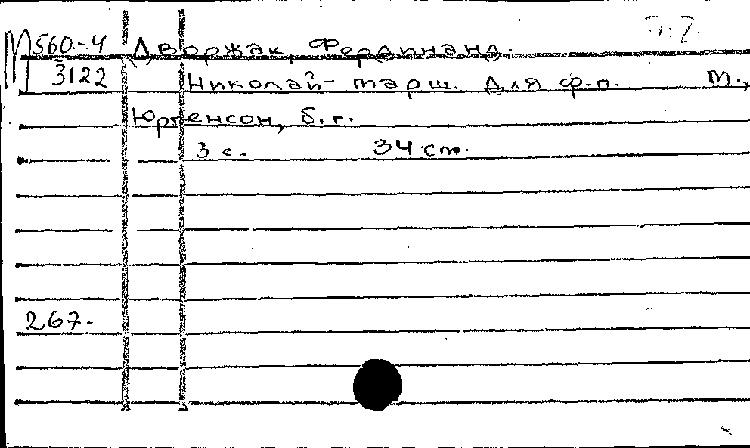 М 560-4 Дворжак, Фердинанд.
3122 Николай-марш. Для ф-п. М.,
Юргенсон, б.г.
3 с. 34 см.
267.